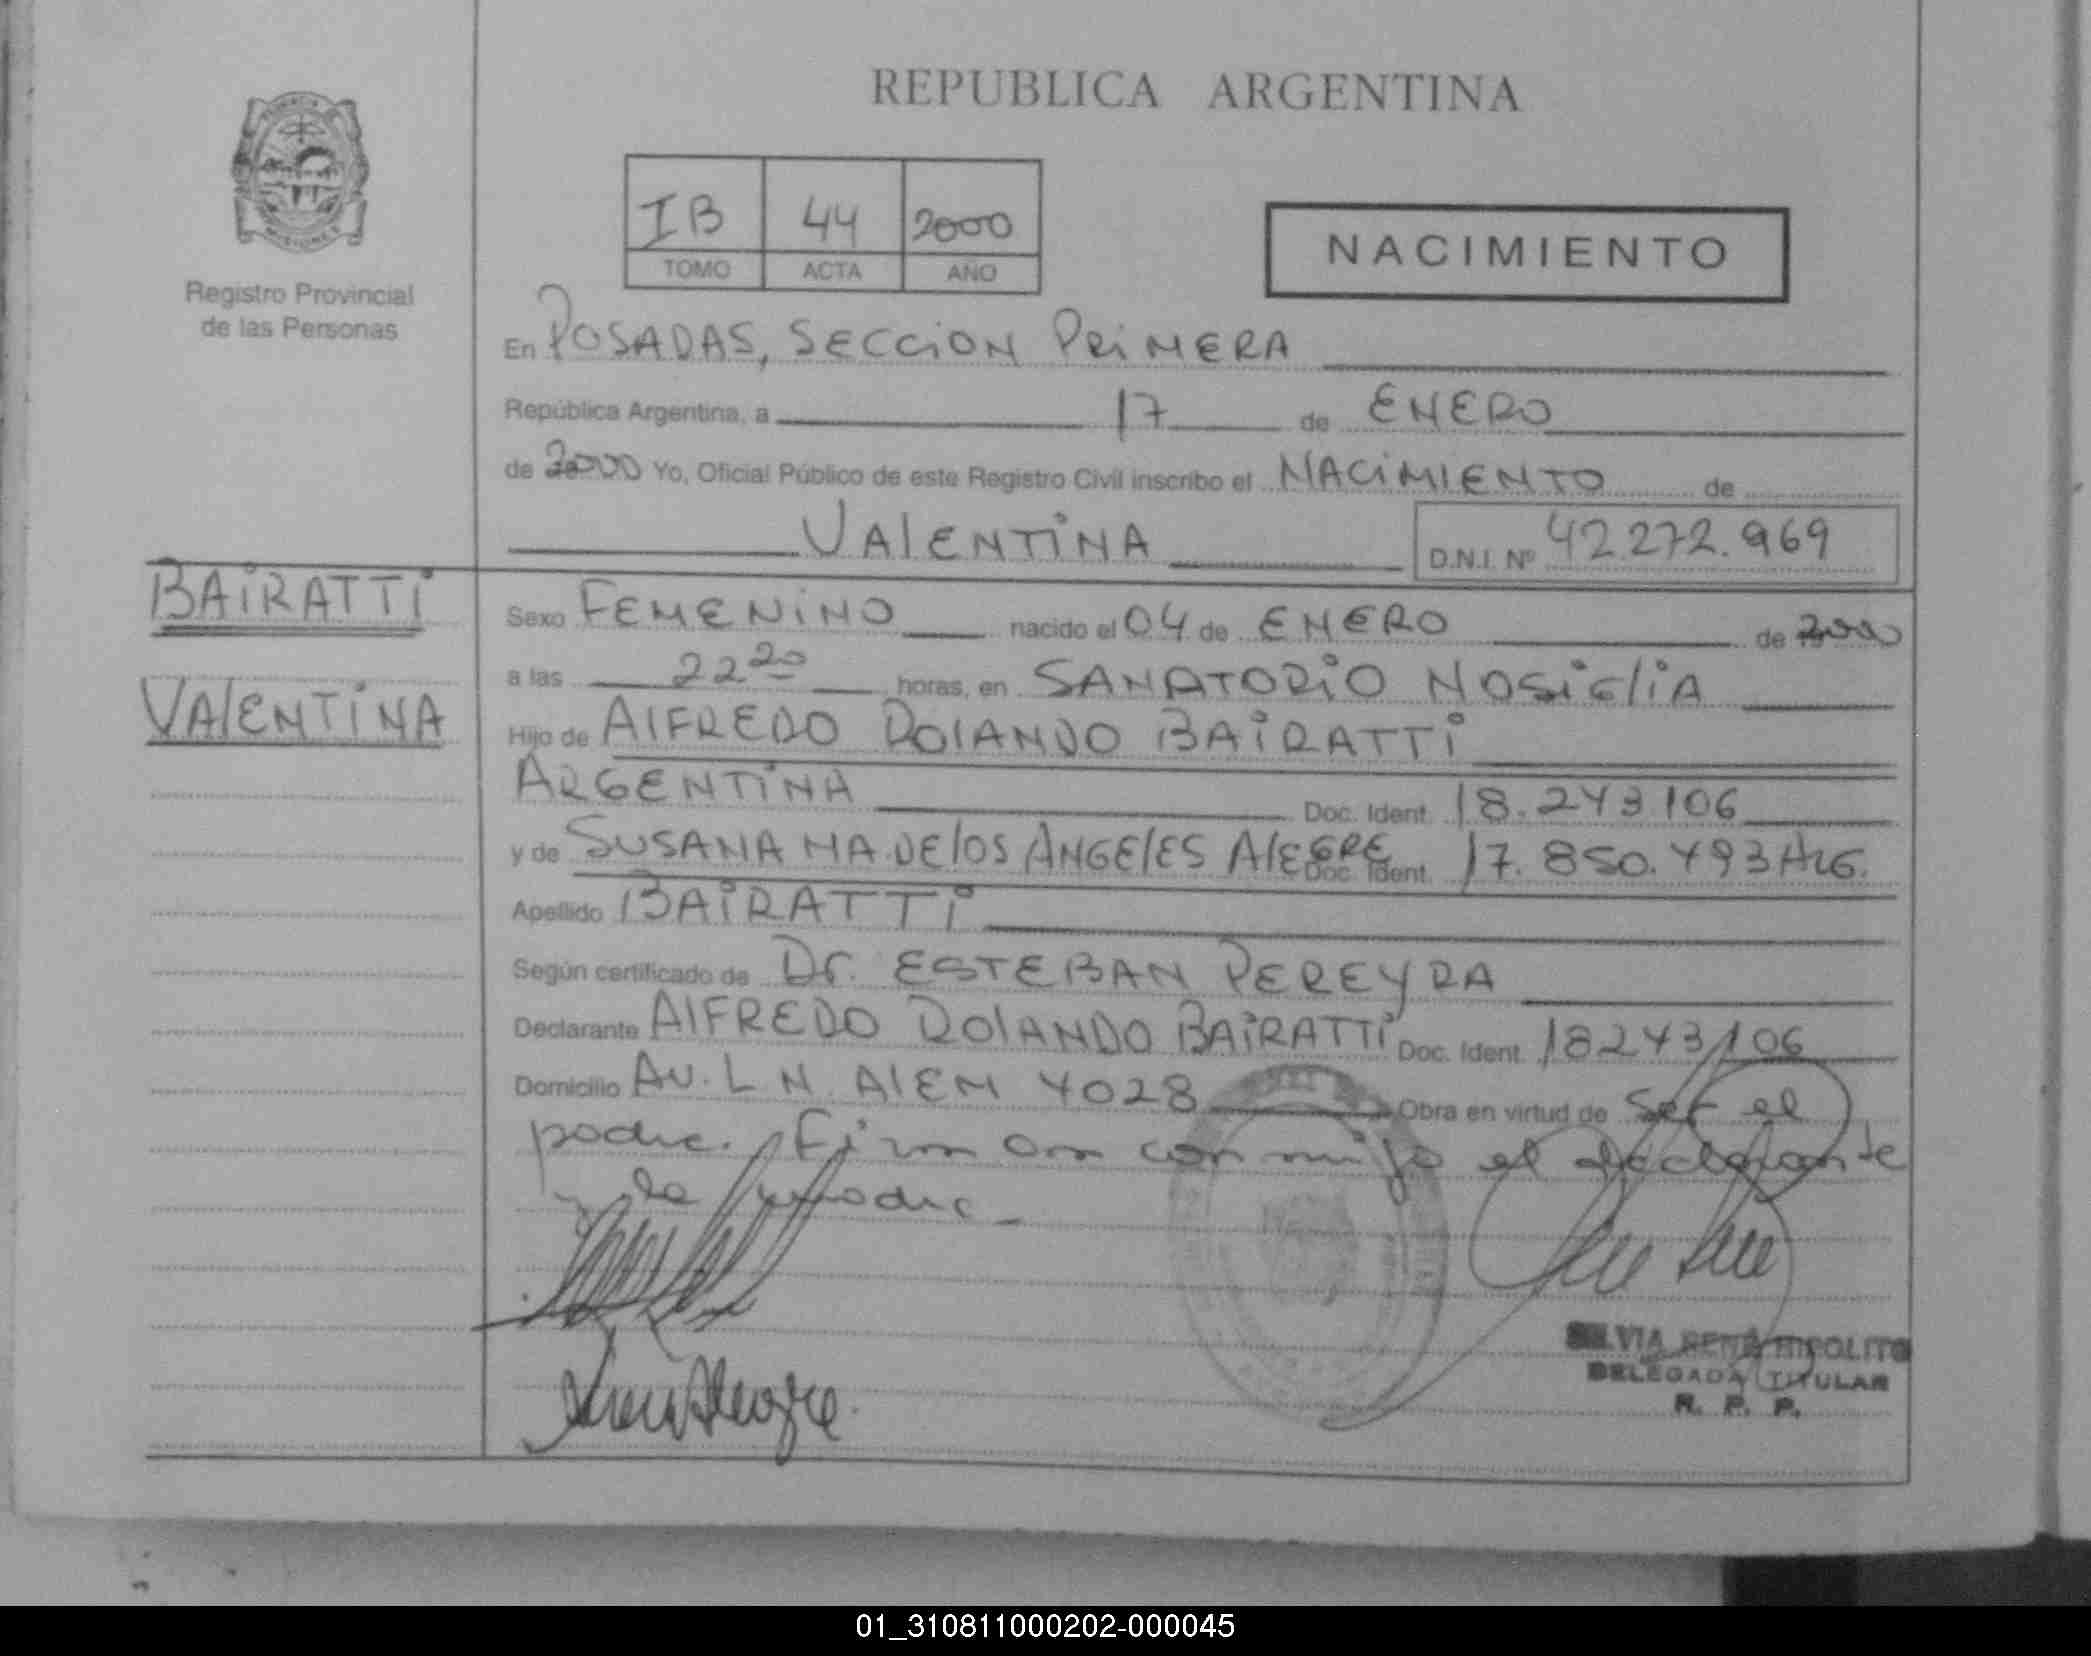 REPUBLICA ARGENTINA
MISIONES
Registro Provincial
de las Personas
IB 44 2000
TOMO ACTA AÑO
NACIMIENTO
En POSADAS, SECCION PRIMERA
República Argentina, a 17 de ENERO
de 2000 Yo, Oficial Público de este Registro Civil inscribo el NACIMIENTO de
VALENTINA D.N.I. Nº 42.272.969
BAIRATTI
VALENTINA
Sexo FEMENINO nacido el 04 de ENERO de 2000
a las 22 20 horas, en SANATORIO NOSIGLIA
Hijo de ALFREDO ROLANDO BAIRATTI
ARGENTINA Doc. Ident. 18.243.106
y de SUSANA MA. DE LOS ANGELES ALEGRE Doc. Ident. 17.850.493 ARG.
Apellido BAIRATTI
Según certificado de Dr. ESTEBAN PEREYRA
Declarante ALFREDO ROLANDO BAIRATTI Doc. Ident. 18243106
Domicilio AV. L N. ALEM 4028 Obra en virtud de Ser el
padre. Firman conmigo el declarante
y la madre
SILVIA RENÉ HIPOLITO
DELEGADA TITULAR
R. P. P.
01_310811000202-000045